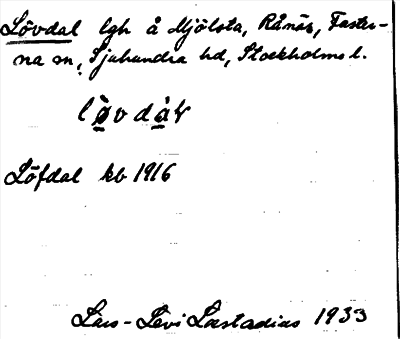 Lövdal lgh å Mjölsta, Rånäs, Faster-
na sn, Sjuhundra hd, Stockholms l.
lø̀vdàɫ
Löfdal kb 1916
Lars-Levi Læstadius 1933